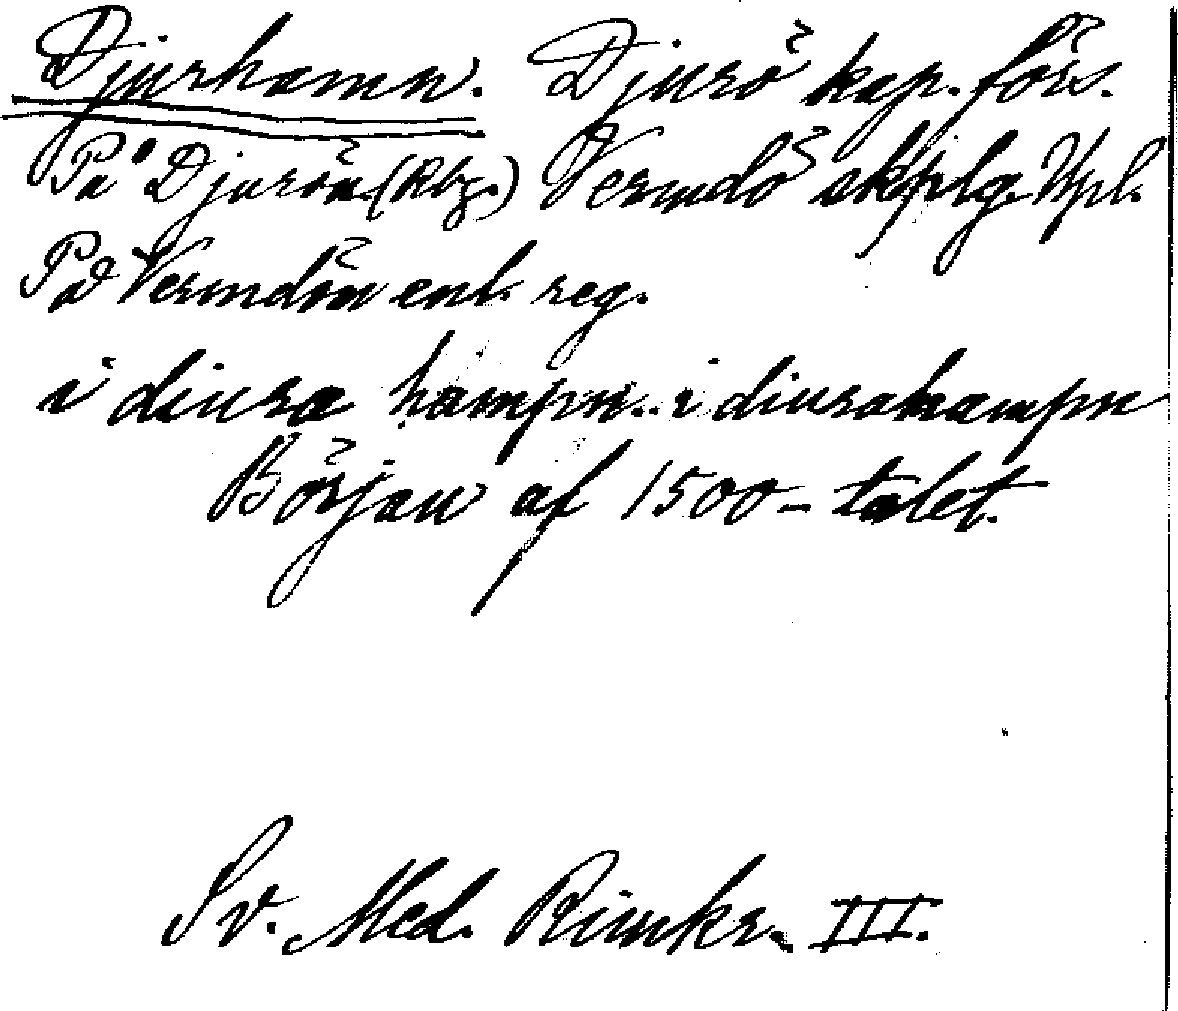 Djurhamn. Djurö kap. förs.
På Djurön (Rbg.) Vermdö skplg. Upl.
På Vermdön enl. reg.
i diura hampn.. i diurahampn
Början af 1500-talet.
Sv. Med. Rimkr. III.